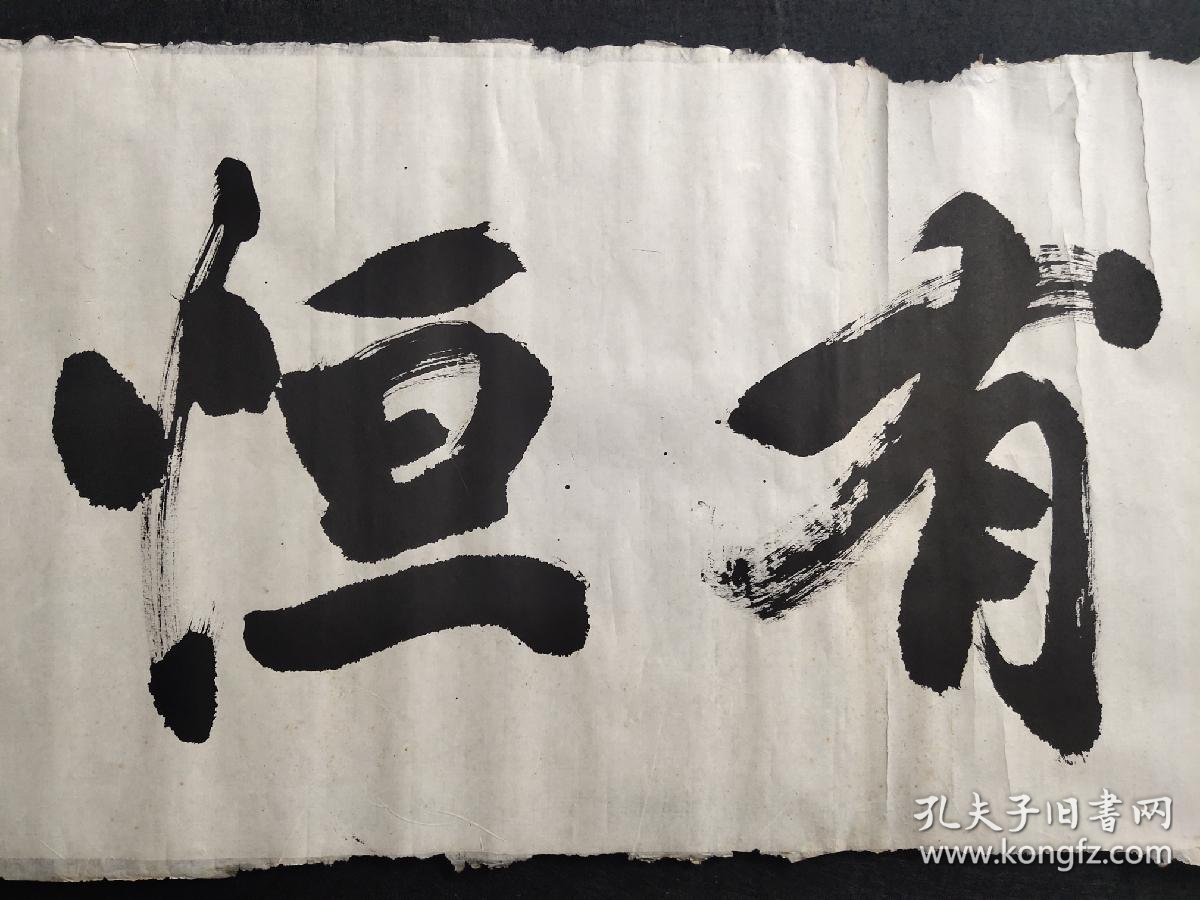 有恒
孔夫子旧書网
www.kongfz.com